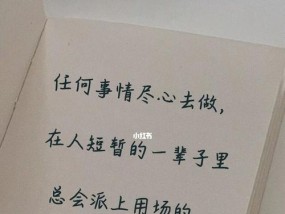 任何事情尽心去做，
小红书
在人短暂的一辈子里
总会派上用场的